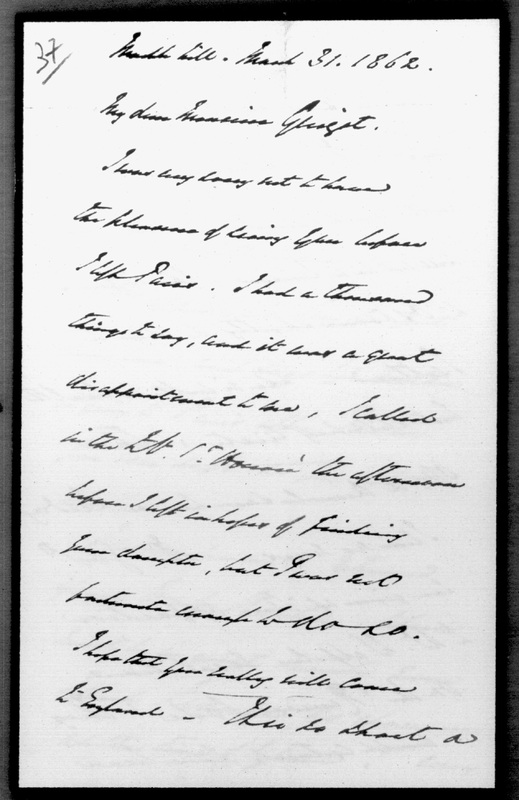 37/
March 31. 1862.
My dear Monsieur Guizot.
I was very sorry not to have
the pleasure of seeing you before
I left Paris. I had a thousand
things to say, and it was a great
disappointment to me, I called
in the Fg St Honoré the afternoon
before I left in hopes of finding
your daughter, but I was not
fortunate enough to do so.
I hope that you really will come
to England – It is so short a